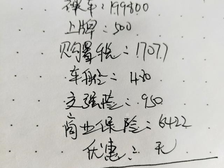 裸车:149800
上牌:500
购置税:17077
车船:480
交强险:950
商业保险:6422
优惠:无